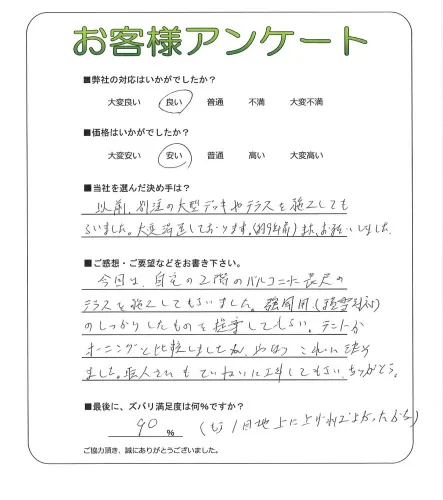 お客様アンケート
■弊社の対応はいかがでしたか？
大変良い 良い 普通 不満 大変不満
■価格はいかがでしたか？
大変安い 安い 普通 高い 大変高い
■当社を選んだ決め手は？
以前、別注の大型デッキやテラスを施工しても
らいました。大変満足しております。(約9年前)また、お願いしました
■ご感想・ご要望などをお書き下さい。
今回は、自宅の2階のバルコニーに長尺の
テラスを施工してもらいました。強風用(積雪対応)
のしっかりしたものを提案してもらい、テントか
オーニングと比較しましたが、やはり これに決め
ました。職人さんも ていねいに工事してもらい、ありがとう。
■最後に、ズバリ満足度は何%ですか？
90 % (もう1日地上に上がれればよかったから)
ご協力頂き、誠にありがとうございました。